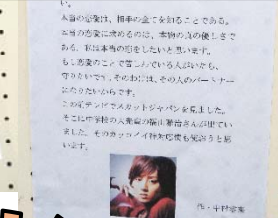 い。
本当の恋愛は、相手の全てを知ることである。
本当の恋愛に求めるのは、本物の真の優しさで
ある。私は本当の恋をしたいと思います。
もし恋愛のことで苦しんでいる人がいたら、
守りたいです。そのためには、その人のパートナー
になりたいからです。
この前テレビでスカットジャパンを見ました。
そこに中学校の大先輩の福山雅治さんが出てい
ました。そのカッコイイ神対応僕も使おうと思
います。
作・中村